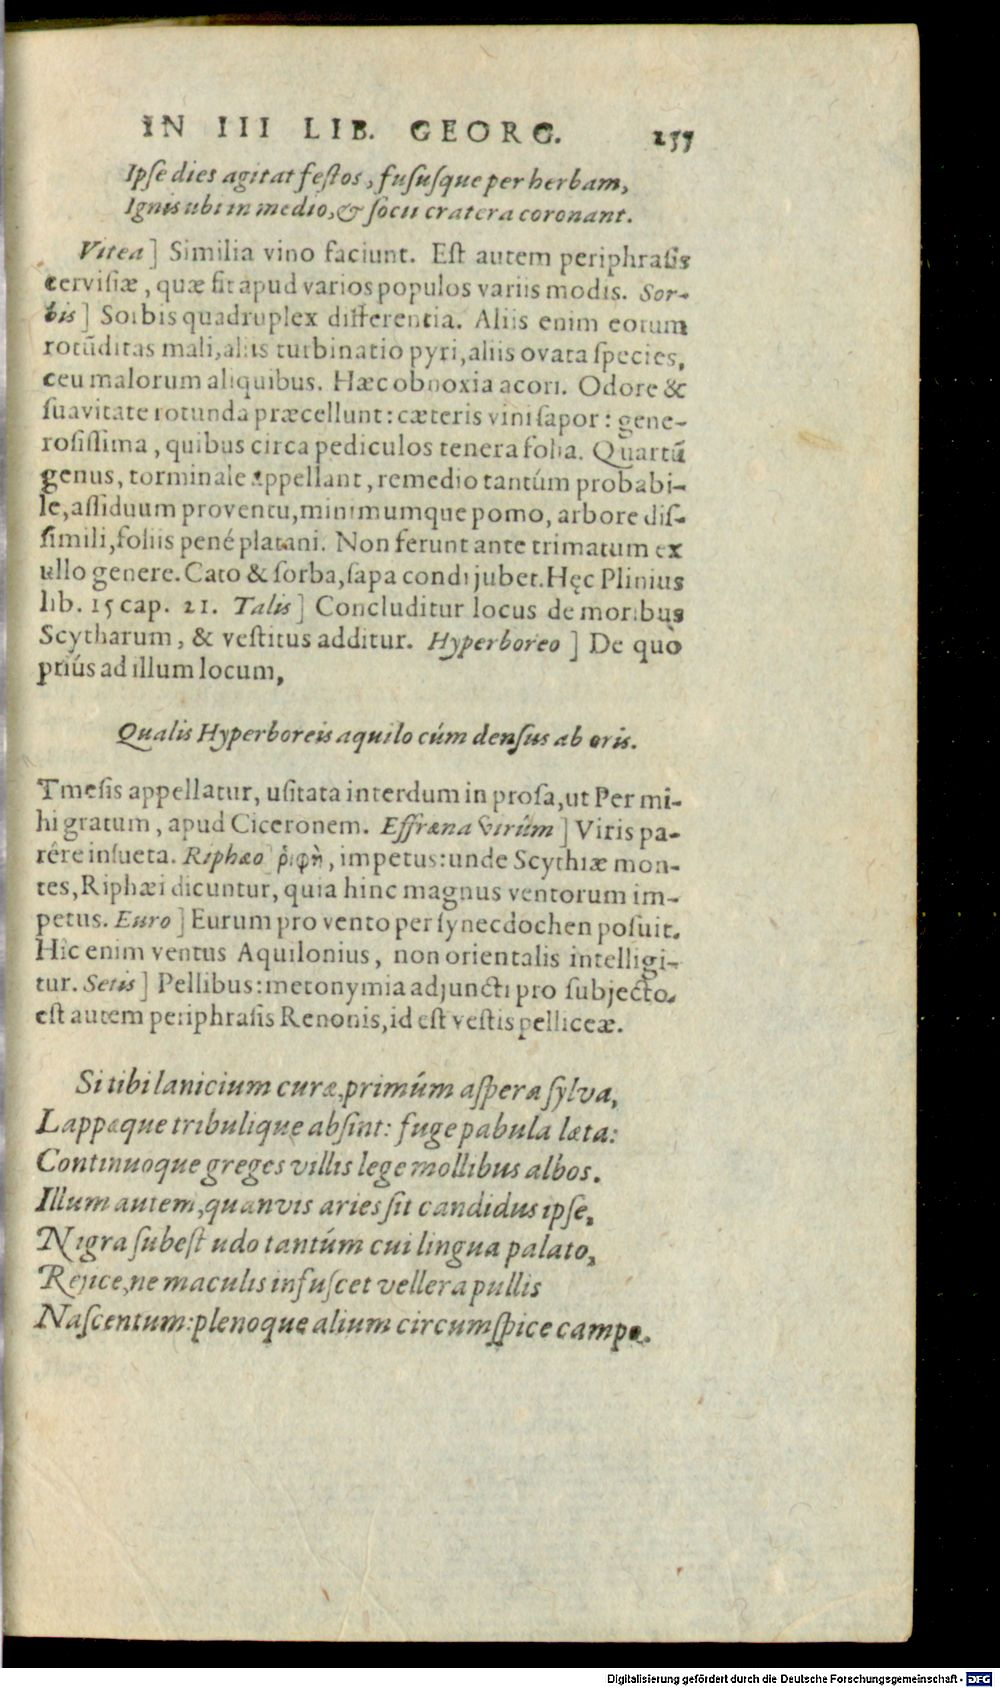 IN III LIB. GEORG. 257
Ipſe dies agitat feſtos, fuſuſque per herbam,
Ignis ubi in medio, & ſocii cratera coronant.
Vitea] Similia vino faciunt. Eſt autem periphraſis
cerviſiæ, quæ fit apud varios populos variis modis. Sor-
bis] Sorbis quadruplex differentia. Aliis enim eorum
rotūditas mali, aliis turbinatio pyri, aliis ovata ſpecies,
ceu malorum aliquibus. Hæc obnoxia acori. Odore &
ſuavitate rotunda præcellunt: cæteris vini ſapor: gene-
roſiſſima, quibus circa pediculos tenera folia. Quartū
genus, torminale appellant, remedio tantúm probabi-
le, aſſiduum proventu, minimumque pomo, arbore diſ-
ſimili, foliis pené platani. Non ferunt ante trimatum ex
ullo genere. Cato & ſorba, ſapa condi jubet. Hęc Plinius
lib. 15 cap. 21. Talis] Concluditur locus de moribus
Scytharum, & veſtitus additur. Hyperboreo] De quo
priús ad illum locum,
Qualis Hyperboreis aquilo cúm denſus ab oris.
Tmeſis appellatur, uſitata interdum in proſa, ut Per mi-
hi gratum, apud Ciceronem. Effræna virûm] Viris pa-
rêre inſueta. Riphæo] ῥιφὴ, impetus: unde Scythiæ mon-
tes, Riphæi dicuntur, quia hinc magnus ventorum im-
petus. Euro] Eurum pro vento per ſynecdochen poſuit.
Hic enim ventus Aquilonius, non orientalis intelligi-
tur. Setis] Pellibus: metonymia adjuncti pro ſubjecto.
eſt autem periphraſis Renonis, id eſt veſtis pelliceæ.
Si tibi lanicium curæ, primúm aſpera ſylva,
Lappæque tribulique abſint: fuge pabula læta:
Continuoque greges villis lege mollibus albos.
Illum autem, quanvis aries ſit candidus ipſe,
Nigra ſubeſt udo tantúm cui lingua palato,
Rejice, ne maculis infuſcet vellera pullis
Naſcentum: plenoque alium circumſpice campo.
Digitalisierung gefördert durch die Deutsche Forschungsgemeinschaft - DFG